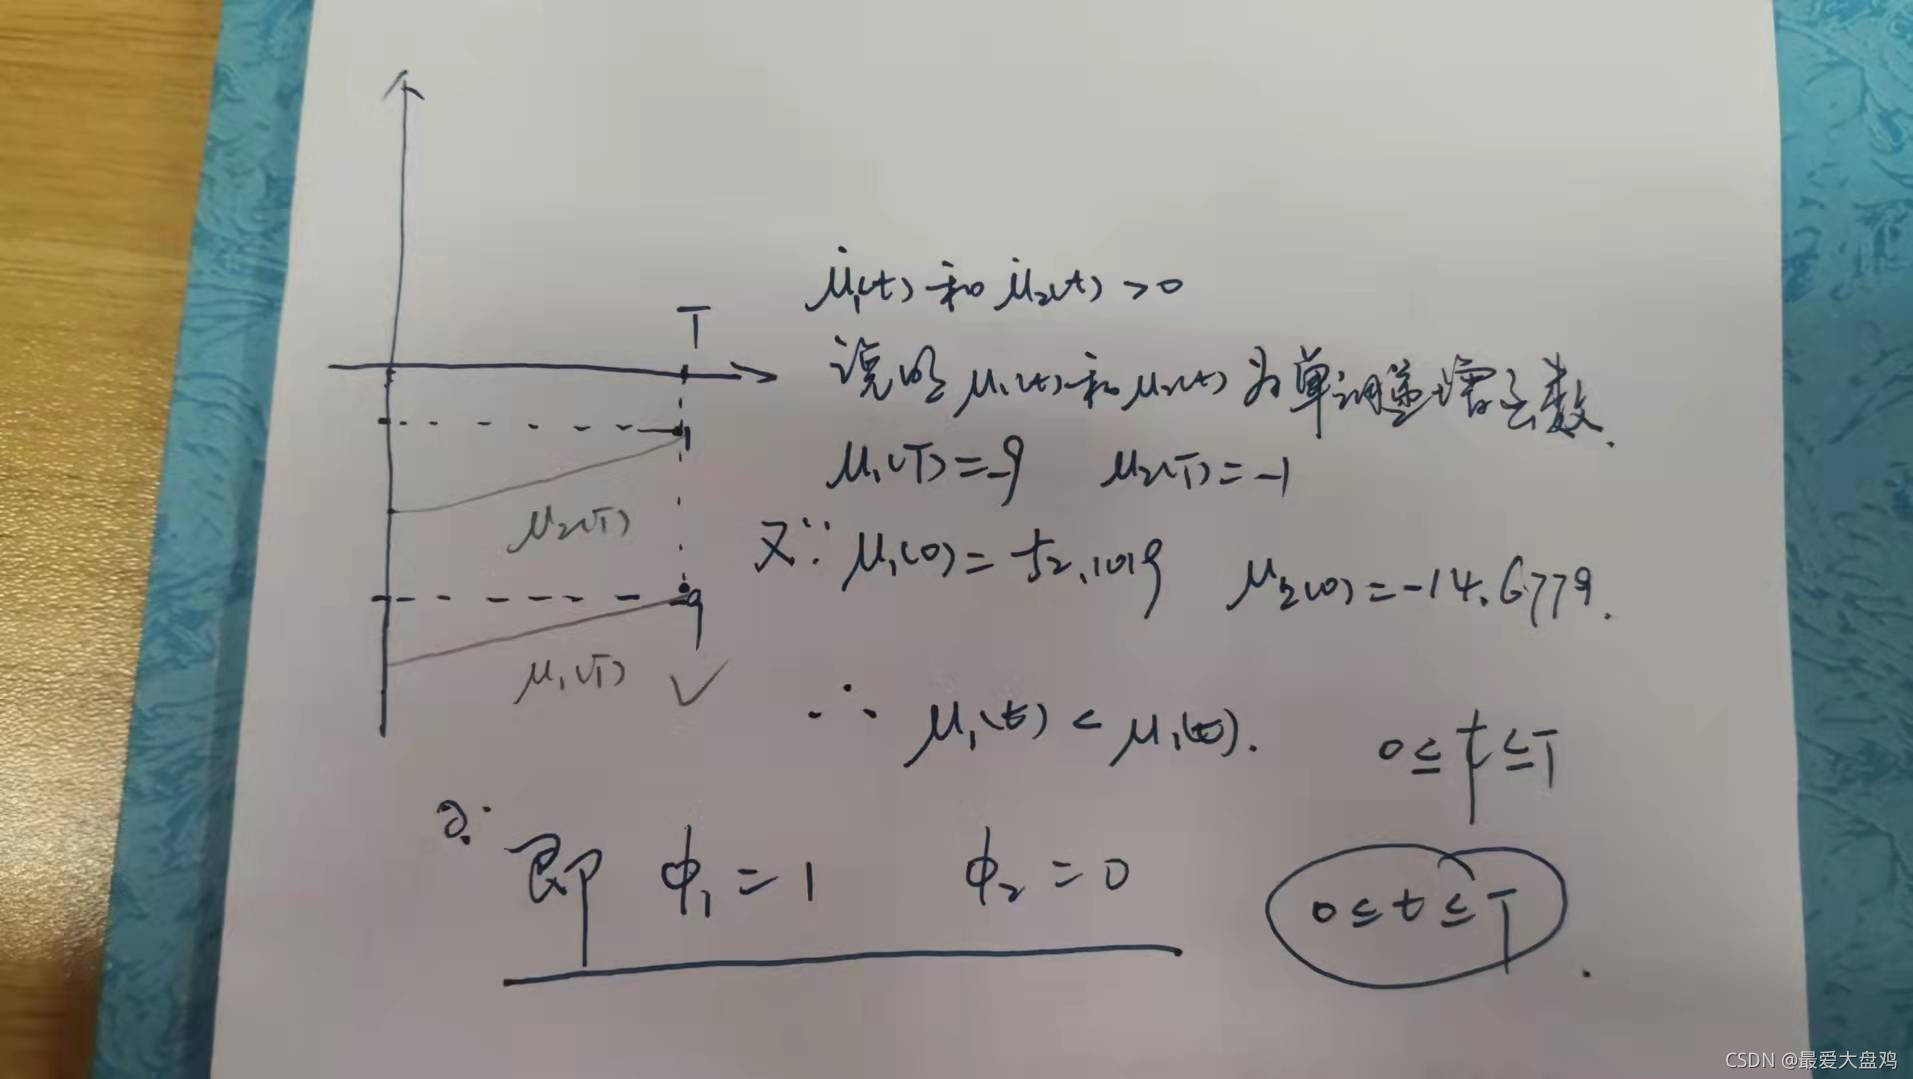 T
μ̇₁(t) 和 μ̇₂(t) >0
说明 μ₁(t) 和 μ₂(t) 为单调递增函数.
μ₁(T)=-9 μ₂(T)=-1
1
μ₂(T)
又∵ μ₁(0)= 52.1019 μ₂(0)=-14.6779.
9
μ₁(T)
∴ μ₁(t) < μ₁(t). 0≤t≤T
2.
即 ϕ₁=1 ϕ₂=0 0≤t≤T.
CSDN @最爱大盘鸡